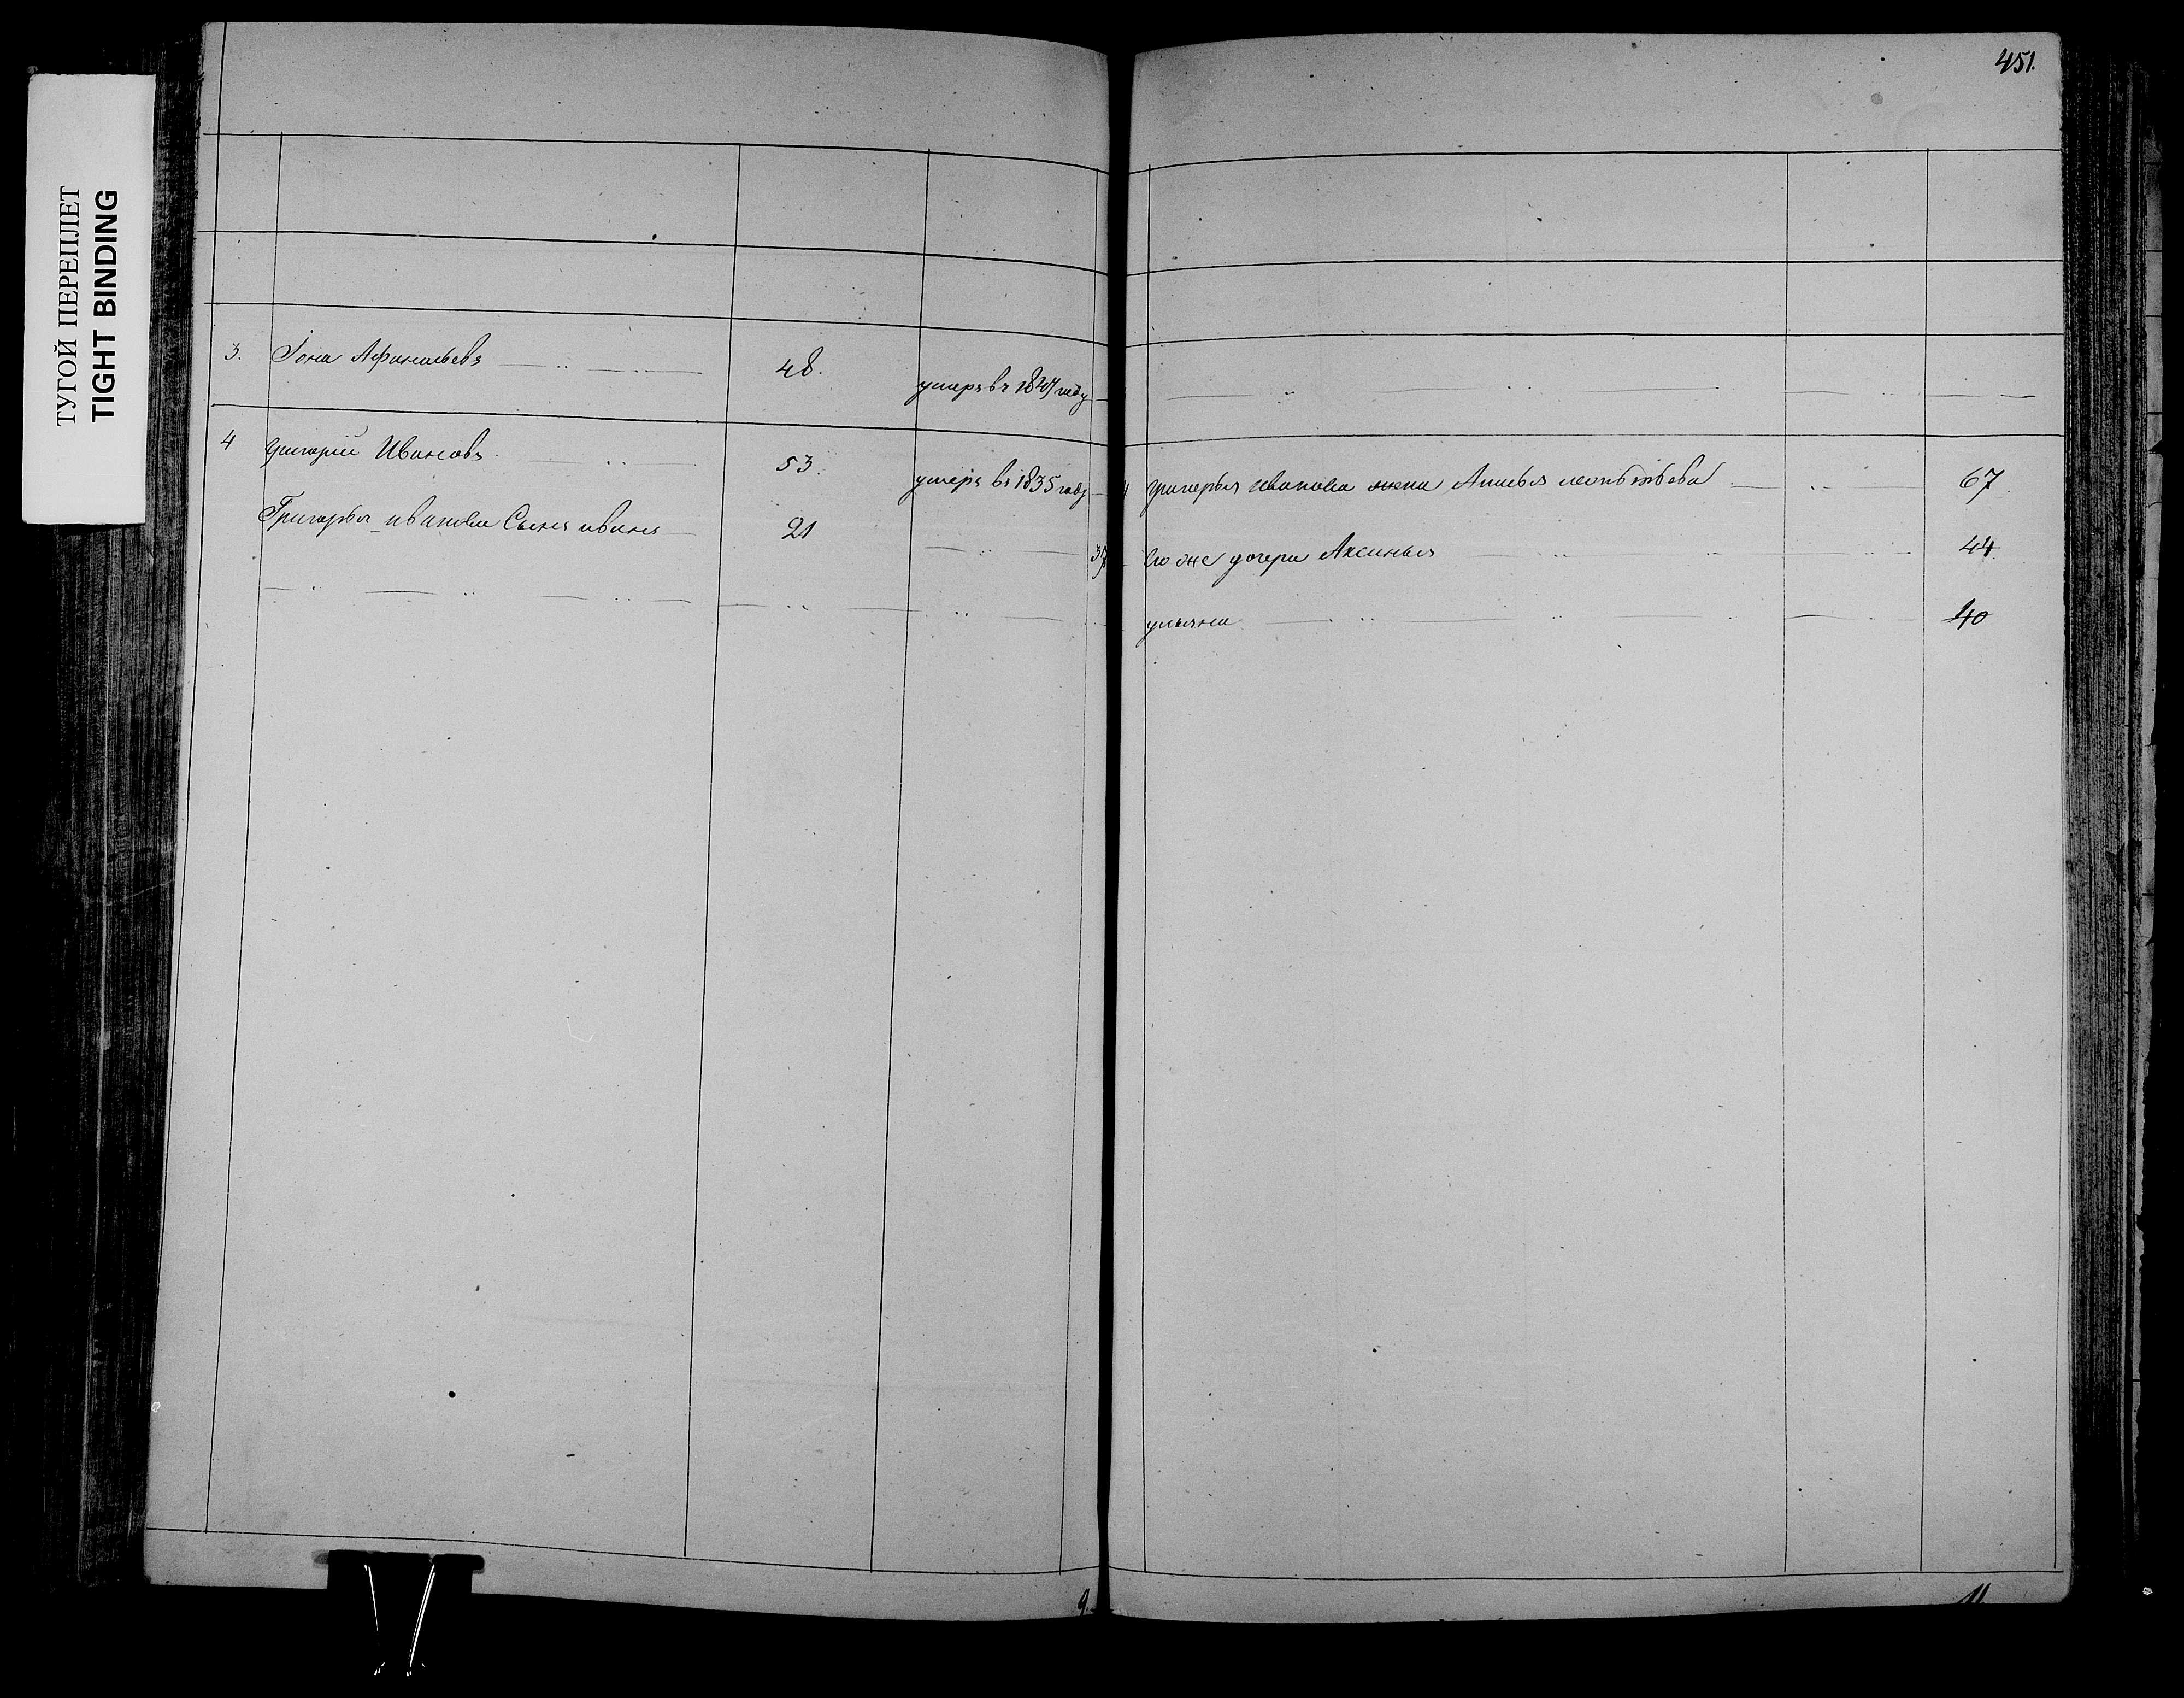 ТУГОЙ ПЕРЕПЛЕТ
TIGHT BINDING
3. Іона Афанасьевъ 48. умеръ въ 1847 году
4 григорій Ивановъ 53. умеръ въ 1835 году
Григорья иванова Сынъ иванъ 21 37
9.
451.
4 григорья иванова жена Анисья леонтьева 67
Его же дочери Аксинья 44
ульяна 40
11.